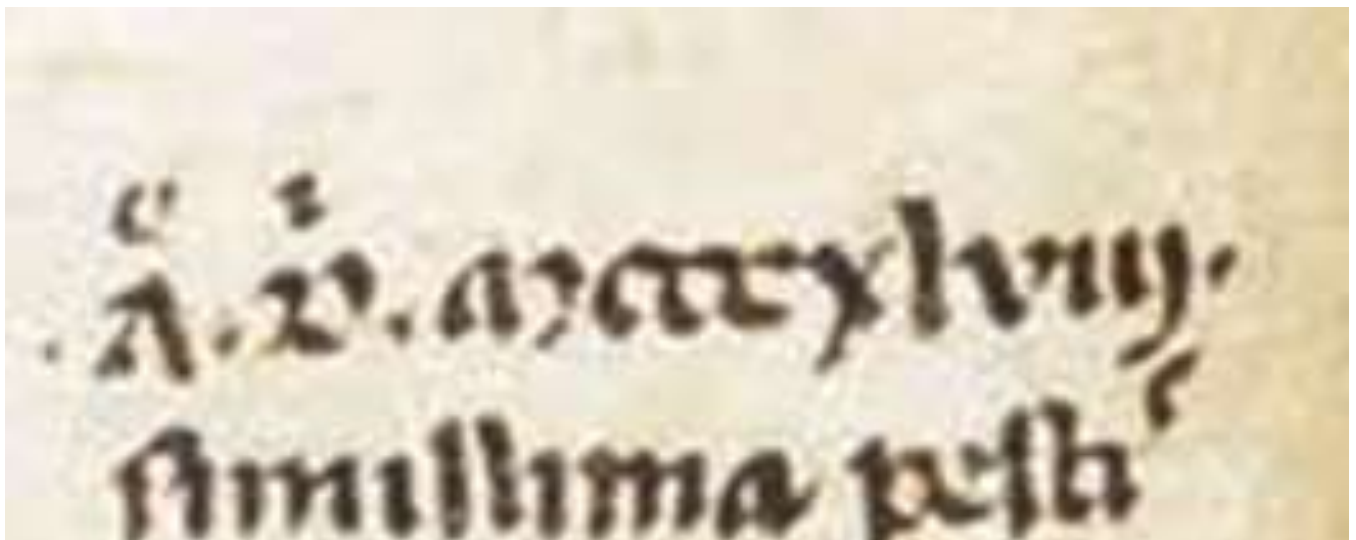 .A.V. mcccxlviij.
ſimillima peſti